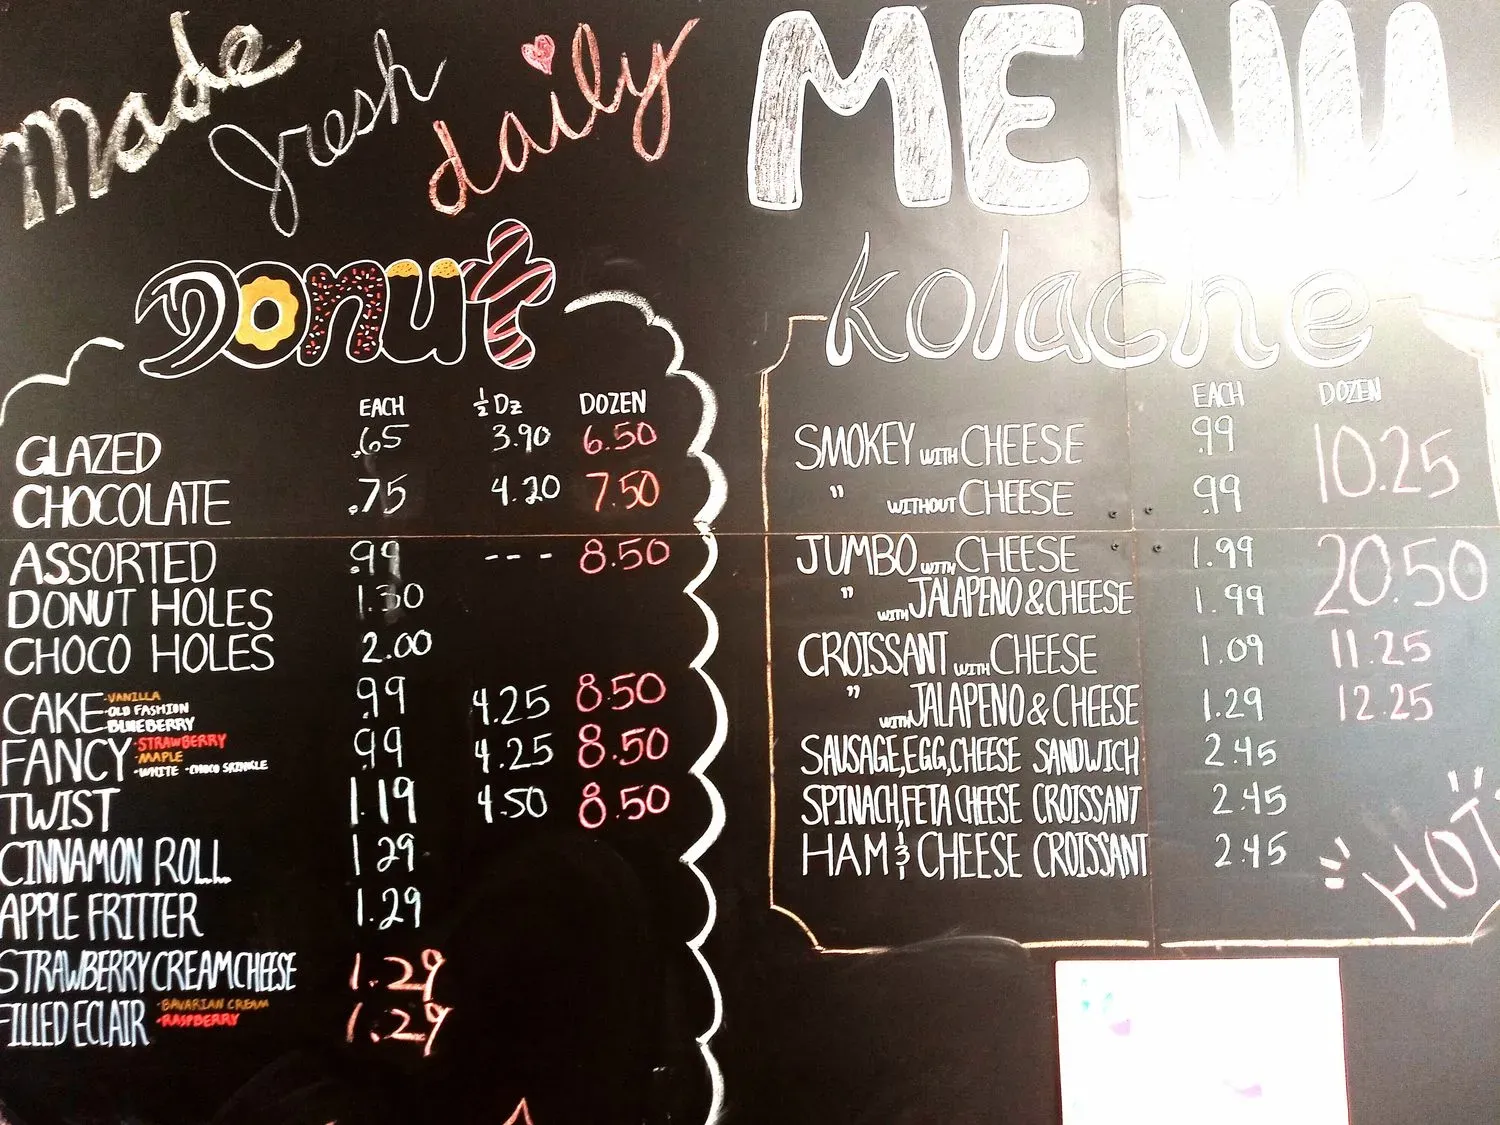 made fresh daily
DONUT
EACH ½ Dz DOZEN
GLAZED .65 3.90 6.50
CHOCOLATE .75 4.20 7.50
ASSORTED .99 --- 8.50
DONUT HOLES 1.30
CHOCO HOLES 2.00
CAKE -VANILLA .99 4.25 8.50
-OLD FASHION
-BLUEBERRY
FANCY -STRAWBERRY .99 4.25 8.50
-MAPLE
-WHITE -CHOCO SRINKLE
TWIST 1.19 4.50 8.50
CINNAMON ROLL 1.29
APPLE FRITTER 1.29
STRAWBERRY CREAM CHEESE 1.29
FILLED ECLAIR -BAVARIAN CREAM 1.29
-RASPBERRY
MENU
kolache
EACH DOZEN
SMOKEY WITH CHEESE .99 10.25
" WITHOUT CHEESE .99
JUMBO WITH CHEESE 1.99 20.50
" WITH JALAPENO & CHEESE 1.99
CROISSANT WITH CHEESE 1.09 11.25
" WITH JALAPENO & CHEESE 1.29 12.25
SAUSAGE, EGG, CHEESE SANDWICH 2.45
SPINACH, FETA CHEESE CROISSANT 2.45
HAM & CHEESE CROISSANT 2.45
HOT